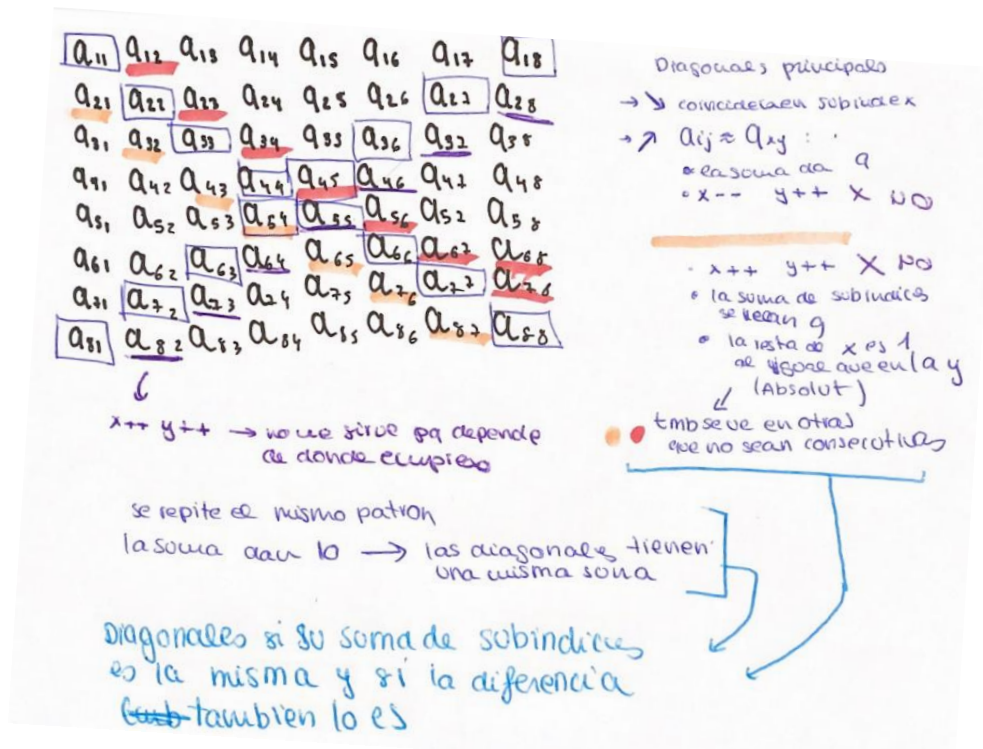 a11 a12 a13 a14 a15 a16 a17 a18
a21 a22 a23 a24 a25 a26 a27 a28
a31 a32 a33 a34 a35 a36 a37 a38
a41 a42 a43 a44 a45 a46 a47 a48
a51 a52 a53 a54 a55 a56 a57 a58
a61 a62 a63 a64 a65 a66 a67 a68
a71 a72 a73 a74 a75 a76 a77 a78
a81 a82 a83 a84 a85 a86 a87 a88
x++ y++ → no me sirve pq depende
de donde empiezo
Diagonales principals
→ ↘ coinciden en subindex
→ ↗ aij ≈ axy :
• la suma da 9
• x-- y++ X NO
• x++ y++ X NO
• la suma de subindices
se llevan 9
• la resta de x es 1
al igual que en la y
(Absolut)
tmb se ve en otras
que no sean consecutivas
se repite el mismo patron
la suma dan 10 → las diagonales tienen
una misma soma
Diagonales si su soma de subindices
es la misma y si la diferencia
tambien lo es